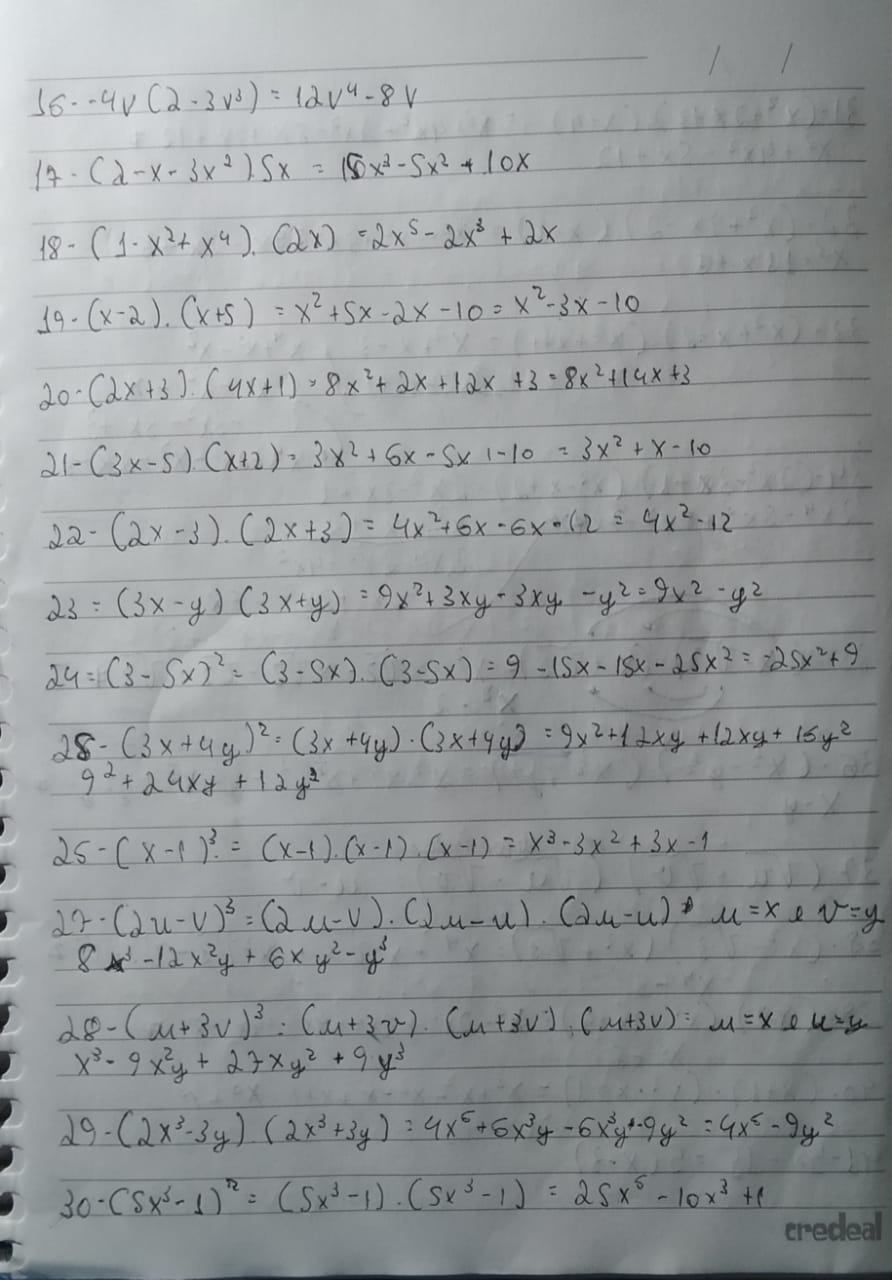 / /
16- -4v (2 - 3v³) = 12v⁴ - 8v
17- (2-x-3x²).5x = 15x³ - 5x² + 10x
18- (1-x²+x⁴).(2x) = 2x⁵ - 2x³ + 2x
19- (x-2).(x+5) = x²+5x-2x-10 = x²-3x-10
20- (2x+3).(4x+1) = 8x²+2x+12x+3 = 8x²+14x+3
21- (3x-5).(x+2) = 3x²+6x-5x-10 = 3x²+x-10
22- (2x-3).(2x+3) = 4x²+6x-6x-12 = 4x²-12
23 = (3x-y)(3x+y) = 9x²+3xy-3xy-y² = 9x²-y²
24 = (3-5x)² = (3-5x).(3-5x) = 9-15x-15x-25x² = -25x²+9
25- (3x+4y)² = (3x+4y).(3x+4y) = 9x²+12xy+12xy+15y²
9²+24xy+12y²
25- (x-1)³ = (x-1).(x-1).(x-1) = x³-3x²+3x-1
27- (2u-v)³ = (2u-v).(2u-u).(2u-u) u=x e v=y
8x³-12x²y+6xy²-y³
28- (u+3v)³ = (u+3v).(u+3v).(u+3v) = u=x e u=y
x³-9x²y+27xy²+9y³
29- (2x³-3y).(2x³+3y) = 4x⁶+6x³y-6x³y-9y² = 4x⁶-9y²
30- (5x³-1)² = (5x³-1).(5x³-1) = 25x⁶-10x³+1
credeal